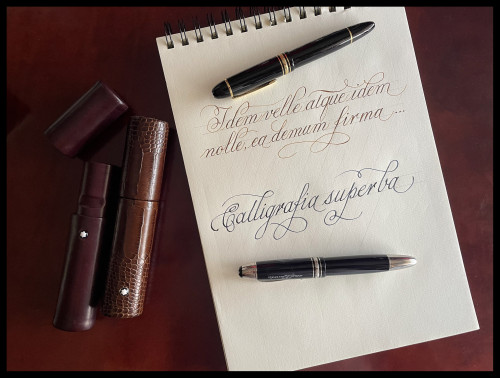 Idem velle atque idem
nolle, ea demum firma ...
Calligrafia superba